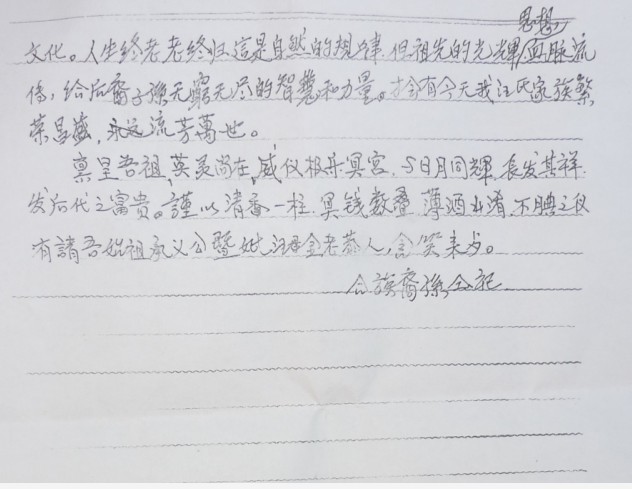 思想
文化。人生终老老终归這是自然的規律.但祖先的光輝/血脉流
傳,给后裔子孫无窮无尽的智慧和力量。才会有今天我汪氏家族繁
荣昌盛,永远流芳萬世。
禀呈吾祖,英灵尚在,威仪极乐冥宫.与日月同輝.長发其祥.
发后代之富貴。謹以清香一柱.冥钱数叠.薄酒出淆.不腆之仪
有請吾始祖承义公暨妣汪母金老恭人,含笑来步。
合族裔孫公祀